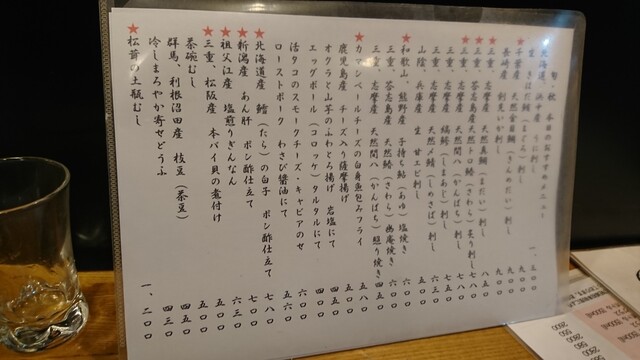 旬、秋 本日のおすすめメニュー
北海道、浜中産 うに刺し 一、三〇〇
生 きはだ鮪（まぐろ）刺し 九〇〇
★千葉産 天然金目鯛（きんめだい）刺し 九〇〇
長崎産 剣先いか刺し 九〇〇
★三重、志摩産 天然真鯛（まだい）刺し 八五〇
★三重、答志島産 天然トロ鰆（さわら）炙り刺し 八八〇
★三重、志摩産 天然間八（かんぱち）刺し 七八〇
三重、志摩産 縞鯵（しまあじ）刺し 七五〇
三重、志摩産 天然〆鯖（しめさば）刺し 六三〇
山陰、兵庫産 生 甘エビ刺し 五八〇
★和歌山、熊野産 子持ち鮎（あゆ）塩焼き 六〇〇
三重、答志島産 天然鰆（さわら）幽庵焼き
三重、志摩産 天然間八（かんぱち）照り焼き
★カマンベールチーズの白身魚包みフライ 五八〇
鹿児島産 チーズ入り薩摩揚げ 四五〇
オクラと山芋のふわとろ揚げ 岩塩にて
エッグボール（コロッケ）タルタルにて
活タコのスモークチーズ・キャビアのせ 六〇〇
ローストポーク わさび醤油にて 五六〇
★北海道産 鱈（たら）の白子 ポン酢仕立て 七八〇
★新潟産 あん肝 ポン酢仕立て 七〇〇
★祖父江産 塩煎りぎんなん 六三〇
★三重、松阪産 本バイ貝の煮付け 五五〇
茶碗むし 五〇〇
群馬、利根沼田産 枝豆（茶豆） 四五〇
冷しまろやか寄せどうふ 四三〇
★松茸の土瓶むし 一、二〇〇